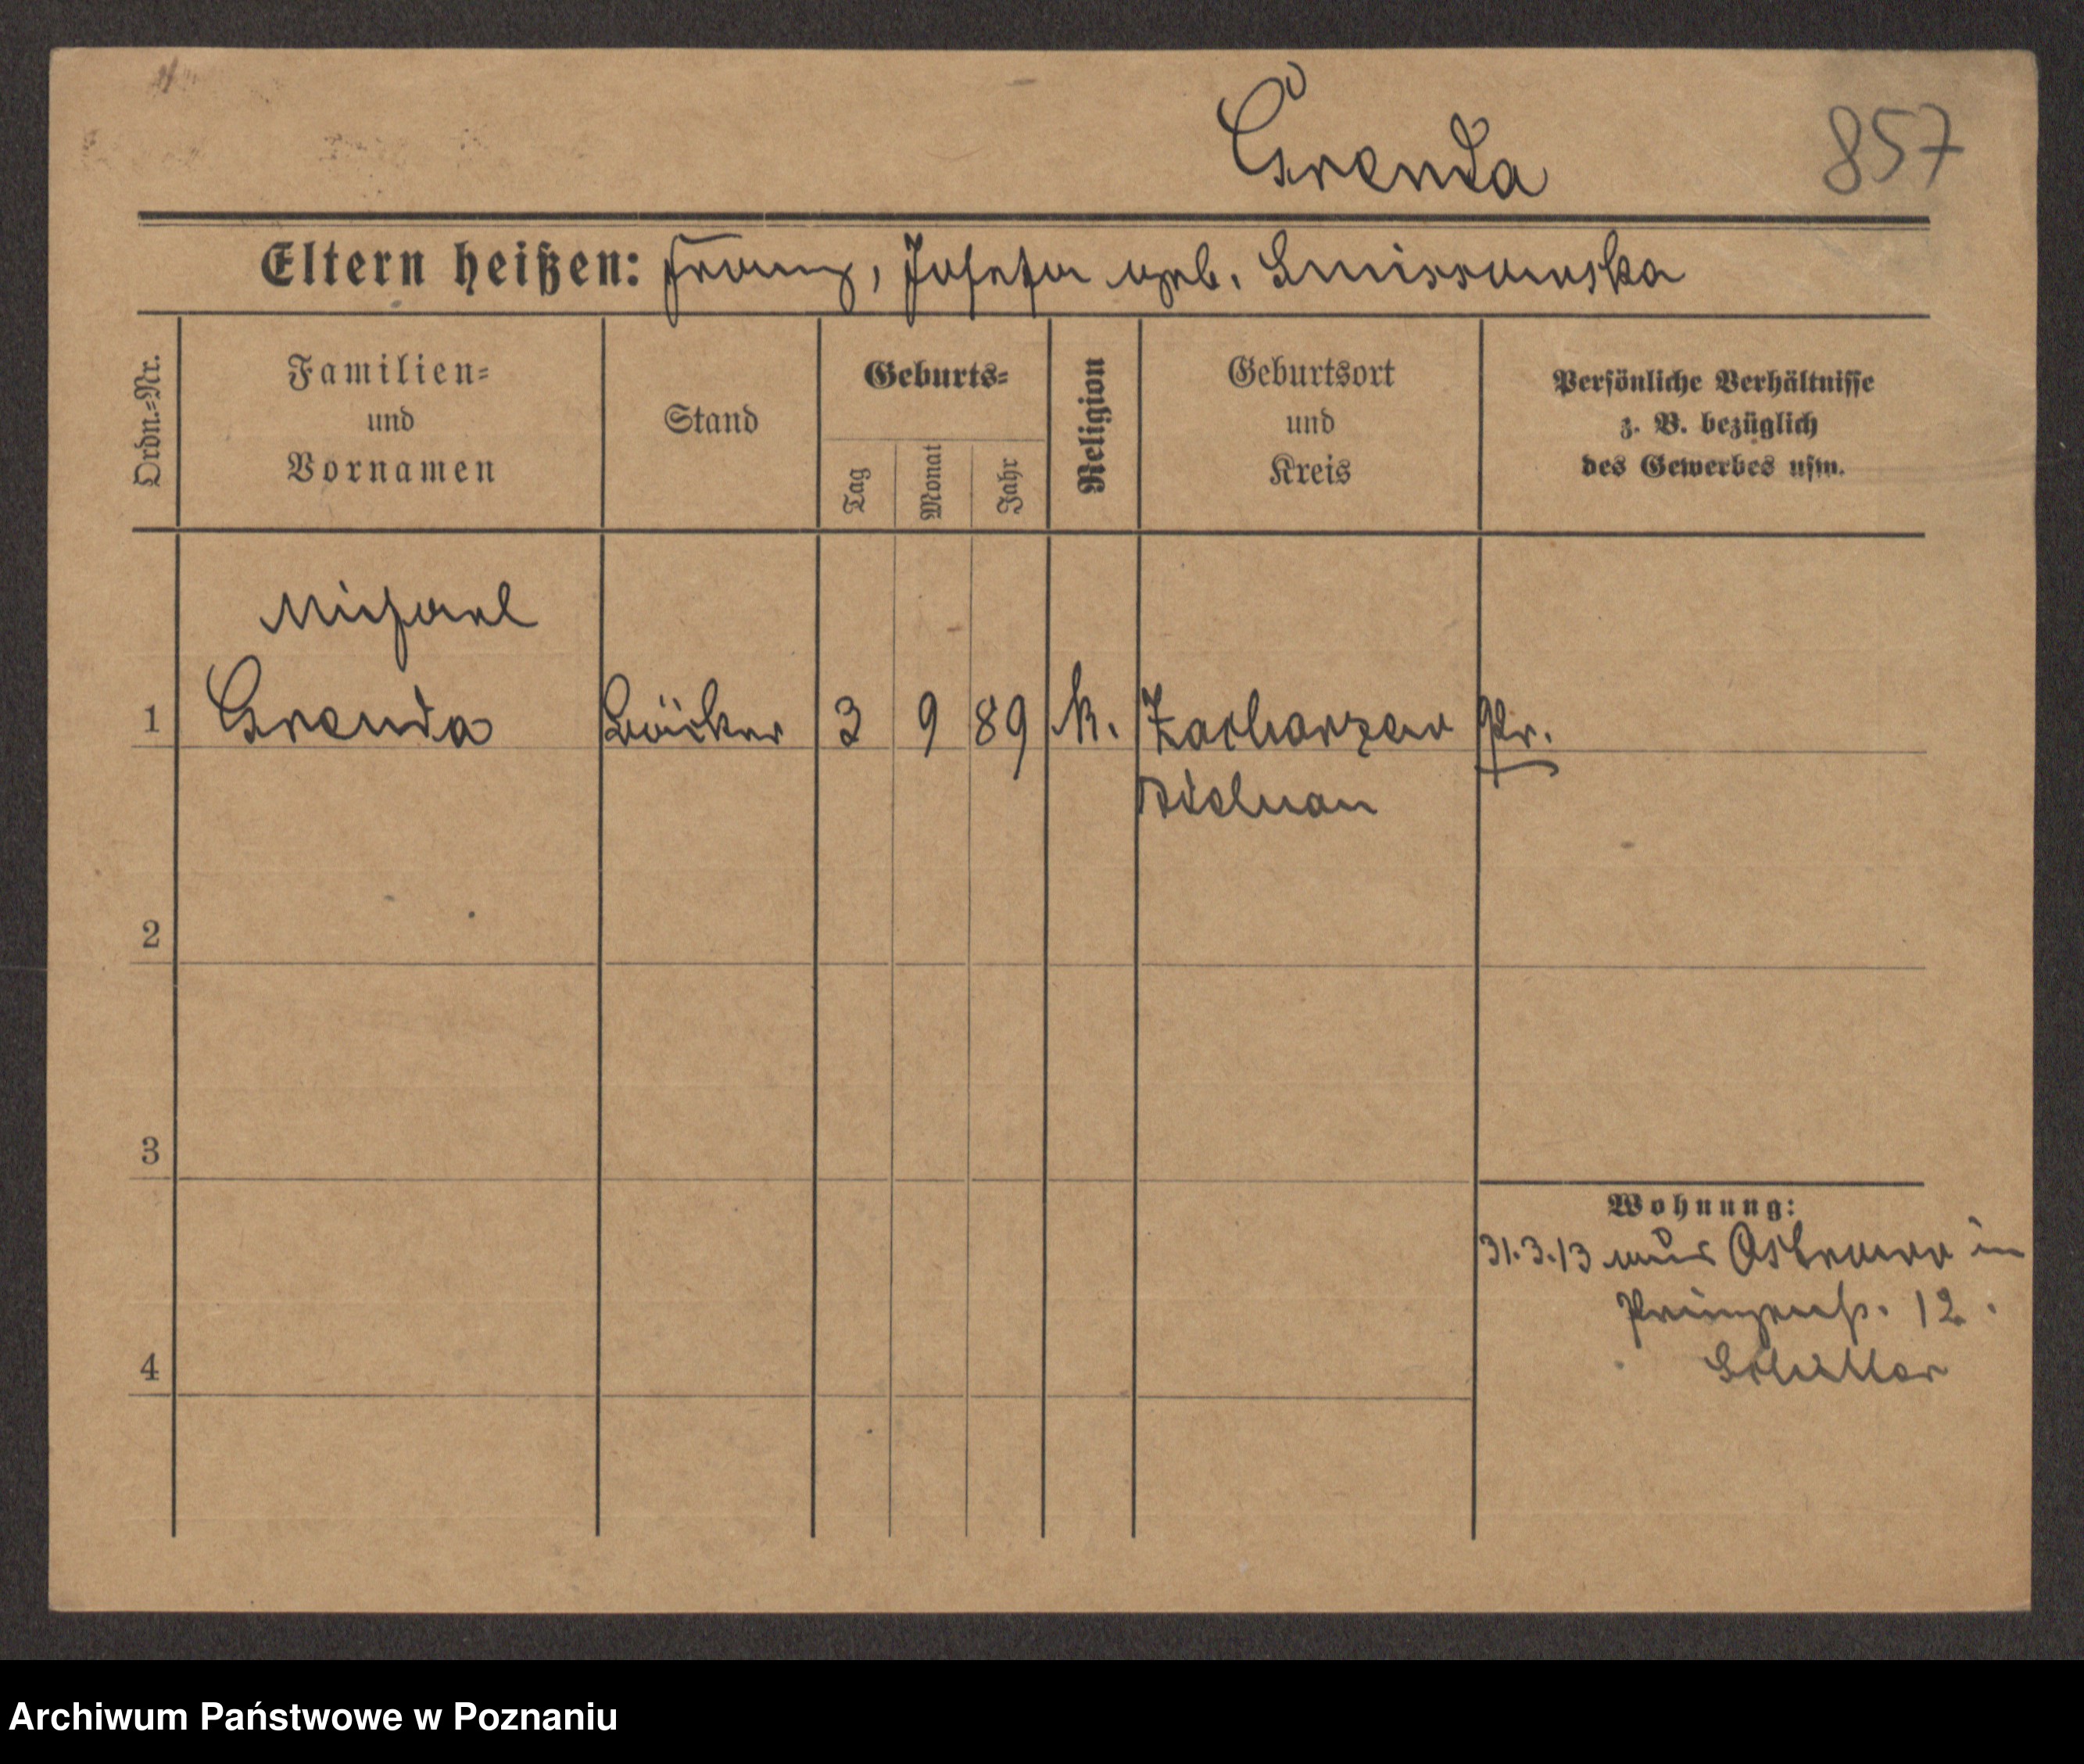 Grenda
857
Eltern heißen: Franz, Josefa geb. Smissowska
Ordn.-Nr.
Familien-
und
Vornamen
Stand
Geburts-
Tag
Monat
Jahr
Religion
Geburtsort
und
Kreis
Persönliche Verhältnisse
z. B. bezüglich
des Gewerbes usw.
Michael
1 Grenda Bäcker 3 9 89 k. Zacharzew Pr.
Adelnau
2
3
4
Wohnung:
31.3.13 aus Ostrowo in
12.
Schiller
Archiwum Państwowe w Poznaniu